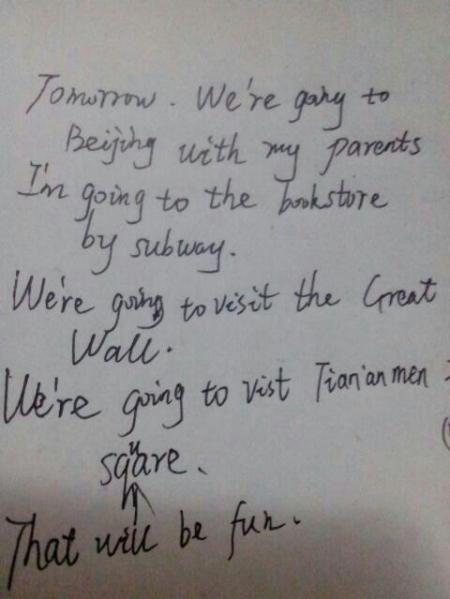 Tomorrow. We're going to
Beijing with my parents
I'm going to the bookstore
by subway.
We're going to visit the Great
Wall.
We're going to vist Tian'anmen
square.
That will be fun.